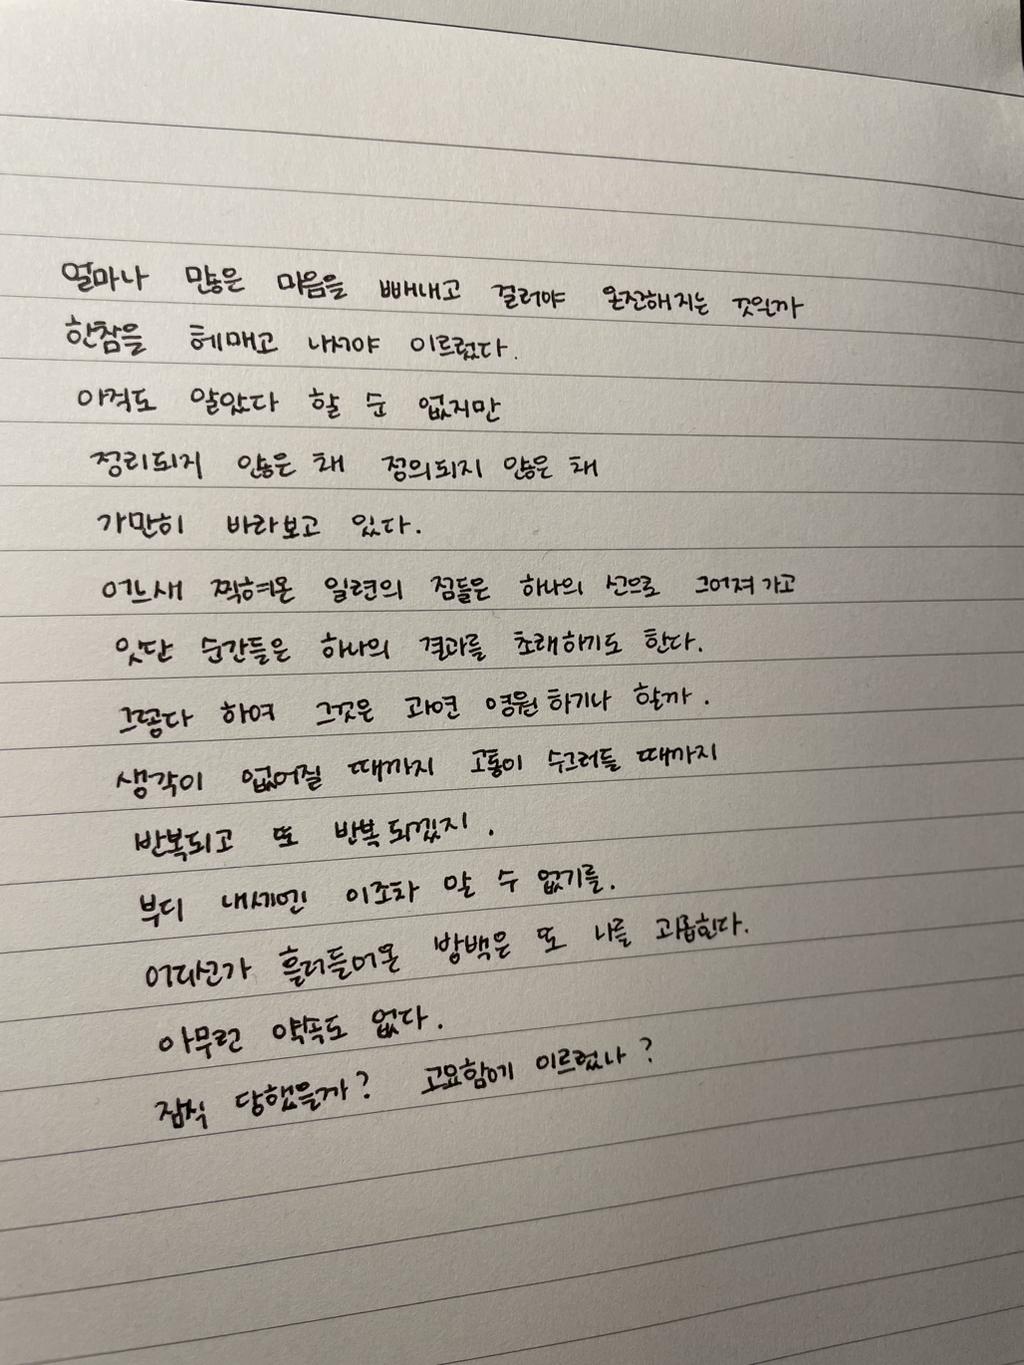 얼마나 많은 마음을 빼내고 걸러야 온전해지는 것일까
한참을 헤매고 나서야 이르렀다.
아직도 알았다 할 순 없지만
정리되지 않은 채 정의되지 않은 채
가만히 바라보고 있다.
어느새 찍혀온 일련의 점들은 하나의 선으로 그어져가고
잇단 순간들은 하나의 결과를 초래하기도 한다.
그렇다 하여 그것은 과연 영원하기나 할까.
생각이 없어질 때까지 고통이 수그러들 때까지
반복되고 또 반복되겠지.
부디 내세엔 이조차 알 수 없기를.
어디선가 흘러들어온 방백은 또 나를 괴롭힌다.
아무런 약속도 없다.
잠식 당했을까? 고요함에 이르렀나?